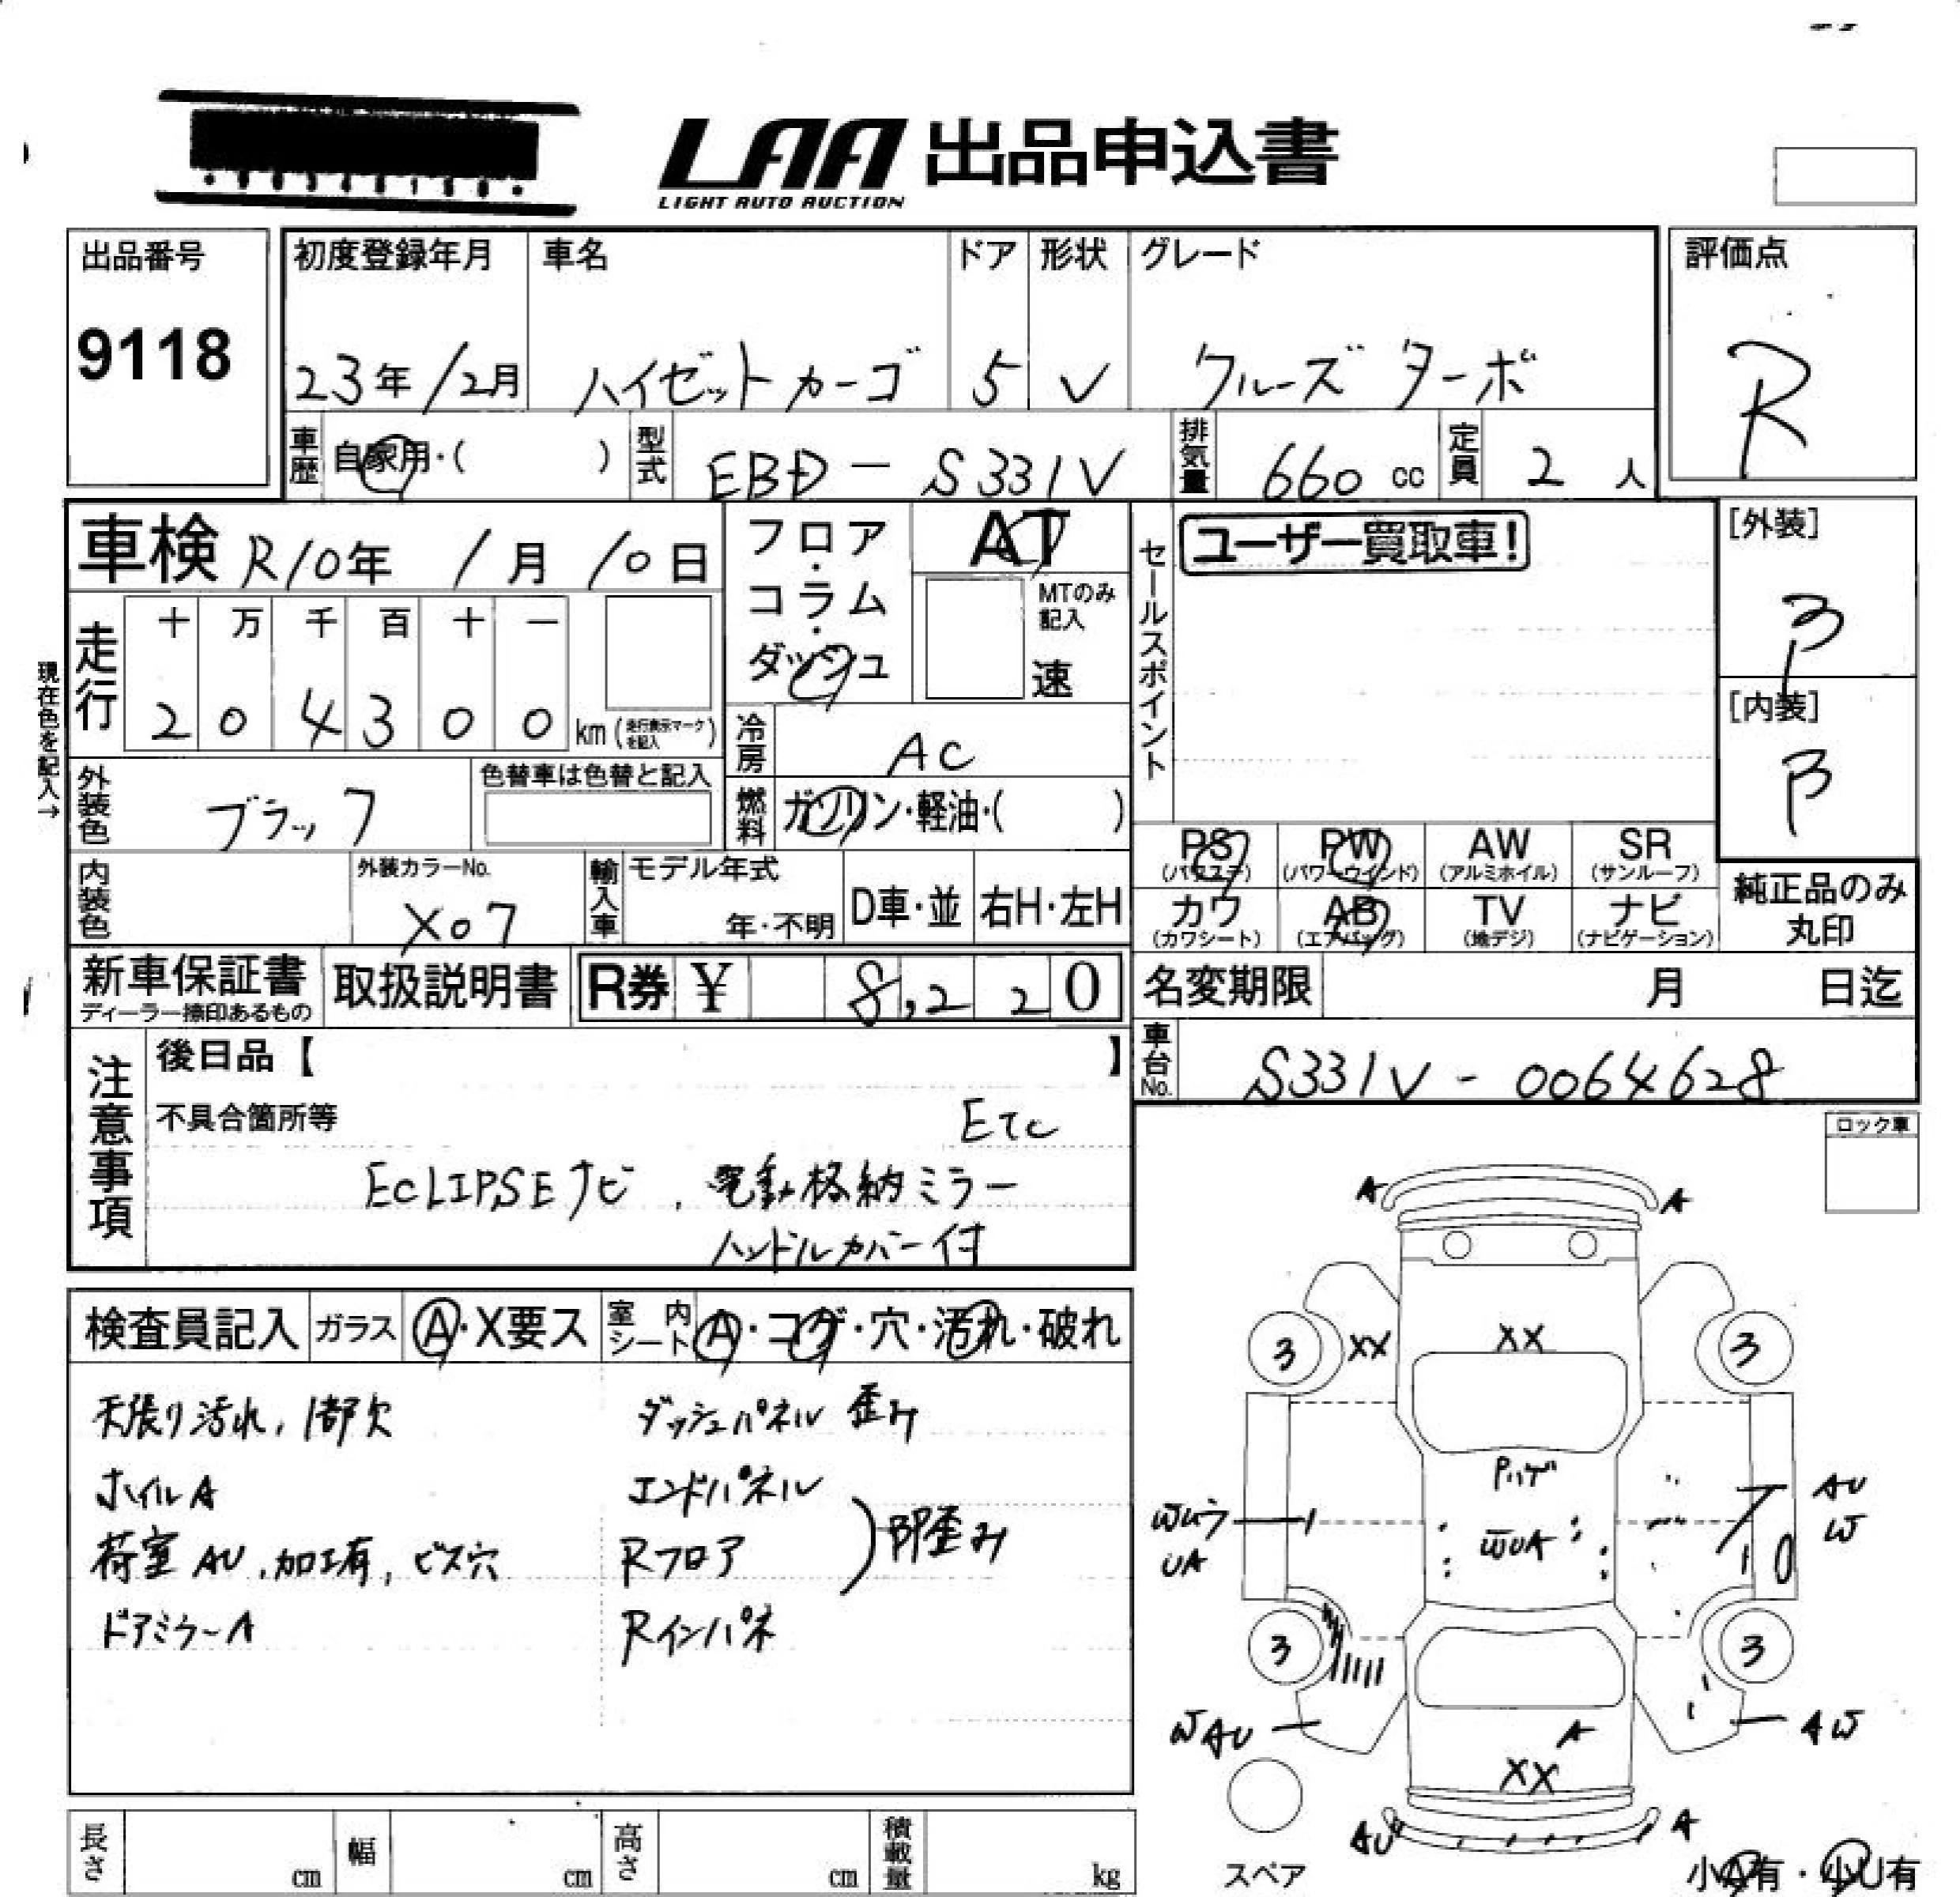 LAA 出品申込書
LIGHT AUTO AUCTION
出品番号
9118
初度登録年月 車名 ドア 形状 グレード
23年 12月 ハイゼットカーゴ 5 V クルーズ ターボ
評価点
R
車歴 自家用・( ) 型式 EBD-S331V 排気量 660 cc 定員 2 人
車検 R10年 1月 10日
フロア・コラム・ダッシュ
AT
MTのみ記入
速
セールスポイント
ユーザー買取車!
[外装]
B
[内装]
B
現在色を記入→
走行
十 万 千 百 十 一
2 0 4 3 0 0 km (走行表示マークを記入)
冷房 AC
外装色 ブラック
色替車は色替と記入
燃料 ガソリン・軽油・( )
内装色
外装カラーNo.
X07
輸入車 モデル年式
年・不明
D車・並 右H・左H
PS (パワステ) PW (パワーウインド) AW (アルミホイル) SR (サンルーフ)
カワ (カワシート) AB (エアバッグ) TV (地デジ) ナビ (ナビゲーション)
純正品のみ
丸印
新車保証書
ディーラー捺印あるもの
取扱説明書
R券 ¥ 8,220
名変期限 月 日迄
車台No. S331V-0064628
注意事項
後日品【 】
不具合箇所等
ETC
ECLIPSEナビ、電動格納ミラー
ハンドルカバー付
ロック車
検査員記入 ガラス A・X要ス 室内シート A・コゲ・穴・汚れ・破れ
天張り汚れ、1部欠 ダッシュパネル 歪み
ホイルA エンドパネル
荷室AU、加工有、ビス穴 Rフロア
ドアミラーA Rインパネ
A A
3 XX XX 3
Pハゲ
WUA
UA
AU
W
3 3
WAU
A
AW
XX
AU A
スペア
小A有・小U有
長さ cm 幅 cm 高さ cm 積載量 kg